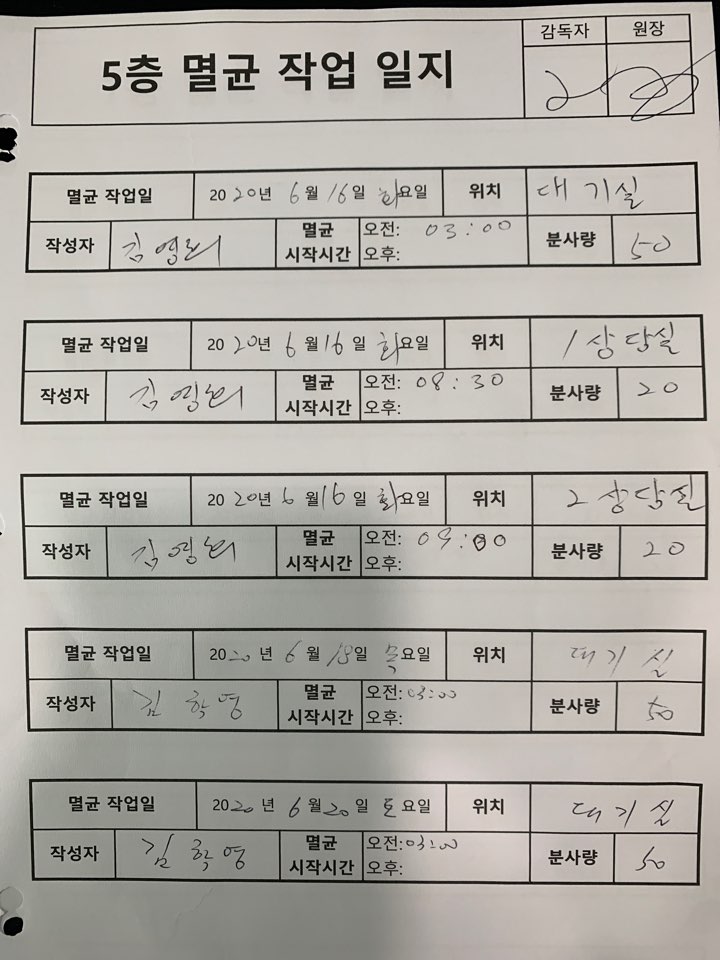 감독자 원장
5층 멸균 작업 일지
멸균 작업일 2020년 6월 16일 화요일 위치 대기실
작성자 김영희 멸균 시작시간 오전: 03:00 오후: 분사량 50
멸균 작업일 2020년 6월 16일 화요일 위치 1상담실
작성자 김영희 멸균 시작시간 오전: 08:30 오후: 분사량 20
멸균 작업일 2020년 6월 16일 화요일 위치 2상담실
작성자 김영희 멸균 시작시간 오전: 09:00 오후: 분사량 20
멸균 작업일 2020년 6월 18일 목요일 위치 대기실
작성자 김학영 멸균 시작시간 오전: 03:00 오후: 분사량 50
멸균 작업일 2020년 6월 20일 토요일 위치 대기실
작성자 김학영 멸균 시작시간 오전: 03:00 오후: 분사량 50